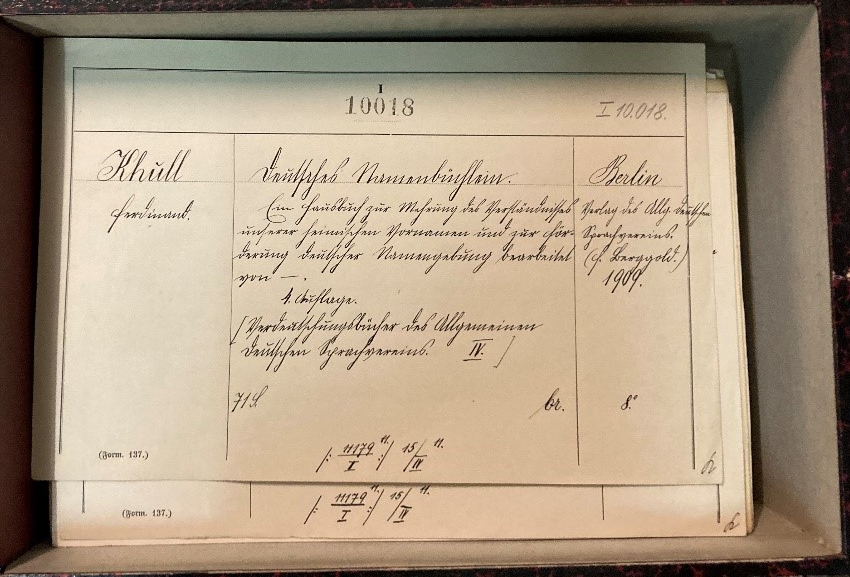 I
10018
I 10.018.
Khull
Ferdinand.
Deutsches Namenbüchlein.
Ein Hausbuch zur Mehrung des Verständnisses
unserer heimischen Vornamen und zur För-
derung deutscher Namengebung bearbeitet
von —.
4. Auflage.
[Verdeutschungsbücher des Allgemeinen
Deutschen Sprachvereins. IV.]
Berlin
Verlag des Allg. Deutschen
Sprachvereins.
(F. Berggold.)
1909.
71 S.
br.
8°
(Form. 137.)
/: 11179 11. :/ 15/ 11.
I IV
(Form. 137.)
/: 11179 11. :/ 15/ 11.
I IV